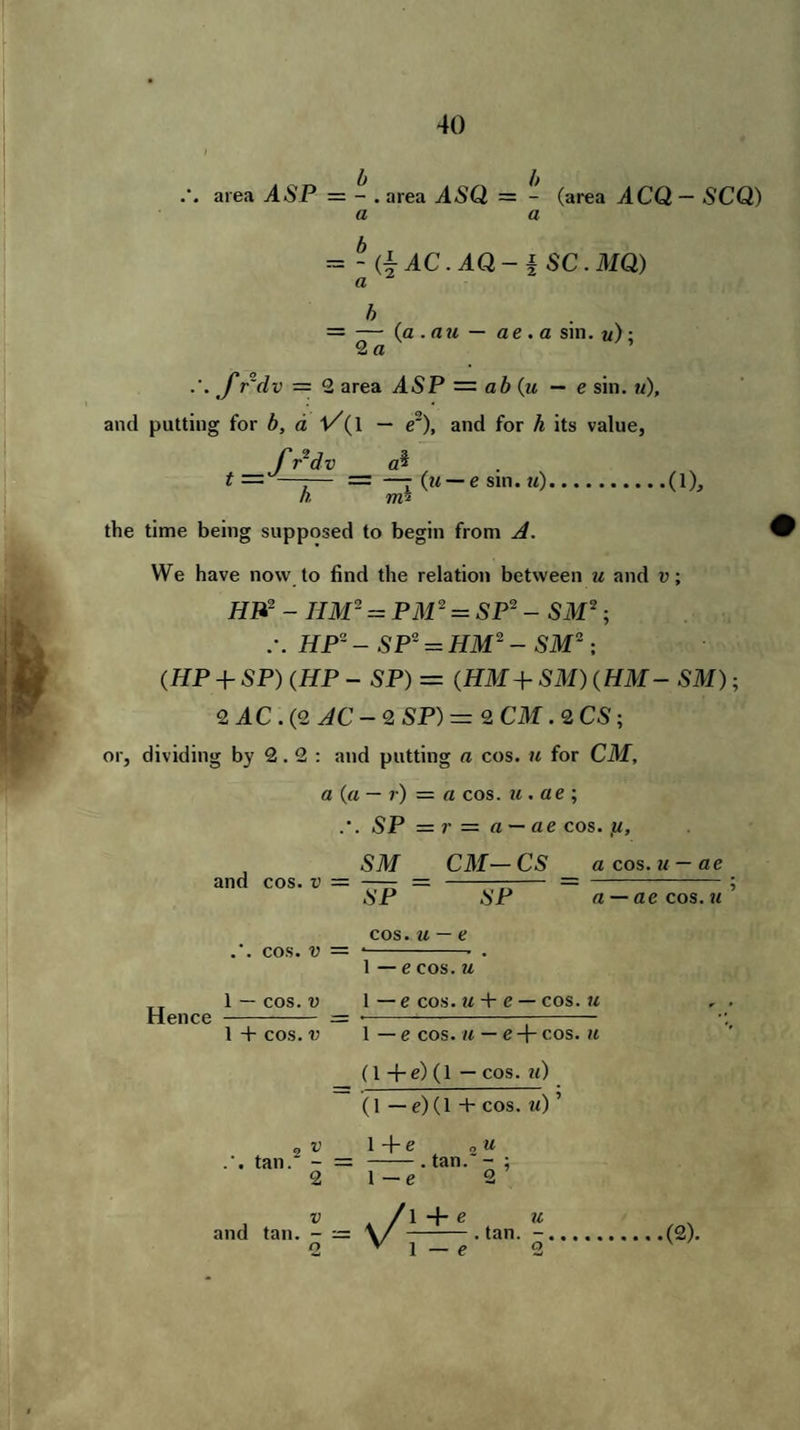 40
∴ area ASP = b/a . area ASQ = b/a (area ACQ − SCQ)
= b/a (½ AC . AQ − ½ SC . MQ)
= b/2a (a . au − ae . a sin. u) ;
∴ ∫r²dv = 2 area ASP = ab (u − e sin. u),
and putting for b, a √(1 − e²), and for h its value,
t = ∫r²dv/h = a^(3/2)/m^(1/2) (u − e sin. u)...........(1),
the time being supposed to begin from A.
We have now to find the relation between u and v ;
HP² − HM² = PM² = SP² − SM² ;
∴ HP² − SP² = HM² − SM² ;
(HP + SP) (HP − SP) = (HM + SM) (HM − SM) ;
2 AC . (2 AC − 2 SP) = 2 CM . 2 CS ;
or, dividing by 2 . 2 : and putting a cos. u for CM,
a (a − r) = a cos. u . ae ;
∴ SP = r = a − ae cos. u,
and cos. v = SM/SP = (CM − CS)/SP = (a cos. u − ae)/(a − ae cos. u) ;
∴ cos. v = (cos. u − e)/(1 − e cos. u) .
Hence (1 − cos. v)/(1 + cos. v) = (1 − e cos. u + e − cos. u)/(1 − e cos. u − e + cos. u)
= (1 + e) (1 − cos. u)/(1 − e) (1 + cos. u) ;
∴ tan.² v/2 = (1 + e)/(1 − e) . tan.² u/2 ;
and tan. v/2 = √((1 + e)/(1 − e)) . tan. u/2...........(2).